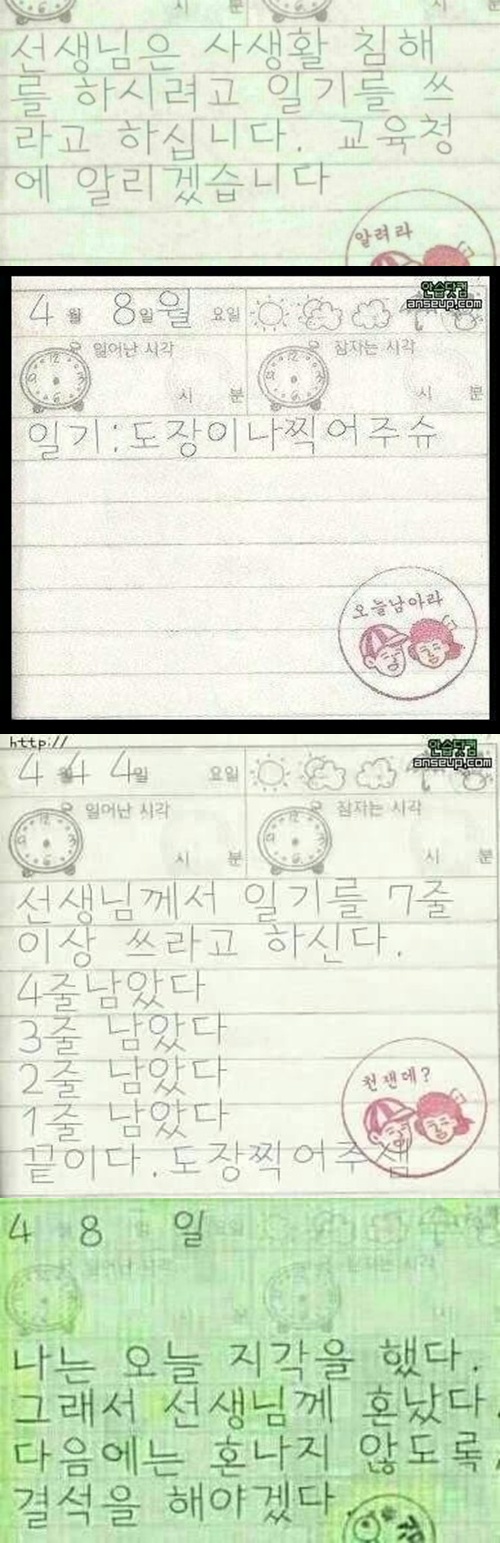 시 분 시 분
선생님은 사생활 침해
를 하시려고 일기를 쓰
라고 하십니다. 교육청
에 알리겠습니다
알려라
안습닷컴
anseup.com
4월 8일 월 요일
일어난 시각 잠자는 시각
시 분 시 분
일기:도장이나찍어주슈
오늘남아라
http://
안습닷컴
anseup.com
4 월 4 4일 요일
일어난 시각 잠자는 시각
시 분 시 분
선생님께서 일기를 7줄
이상 쓰라고 하신다.
4줄남았다
3줄 남았다
2줄 남았다
1줄 남았다
끝이다.도장찍어주셈
천잰데?
4 8 일
일어난 시각 잠자는 시각
나는 오늘 지각을 했다.
그래서 선생님께 혼났다.
다음에는 혼나지 않도록,
결석을 해야겠다.